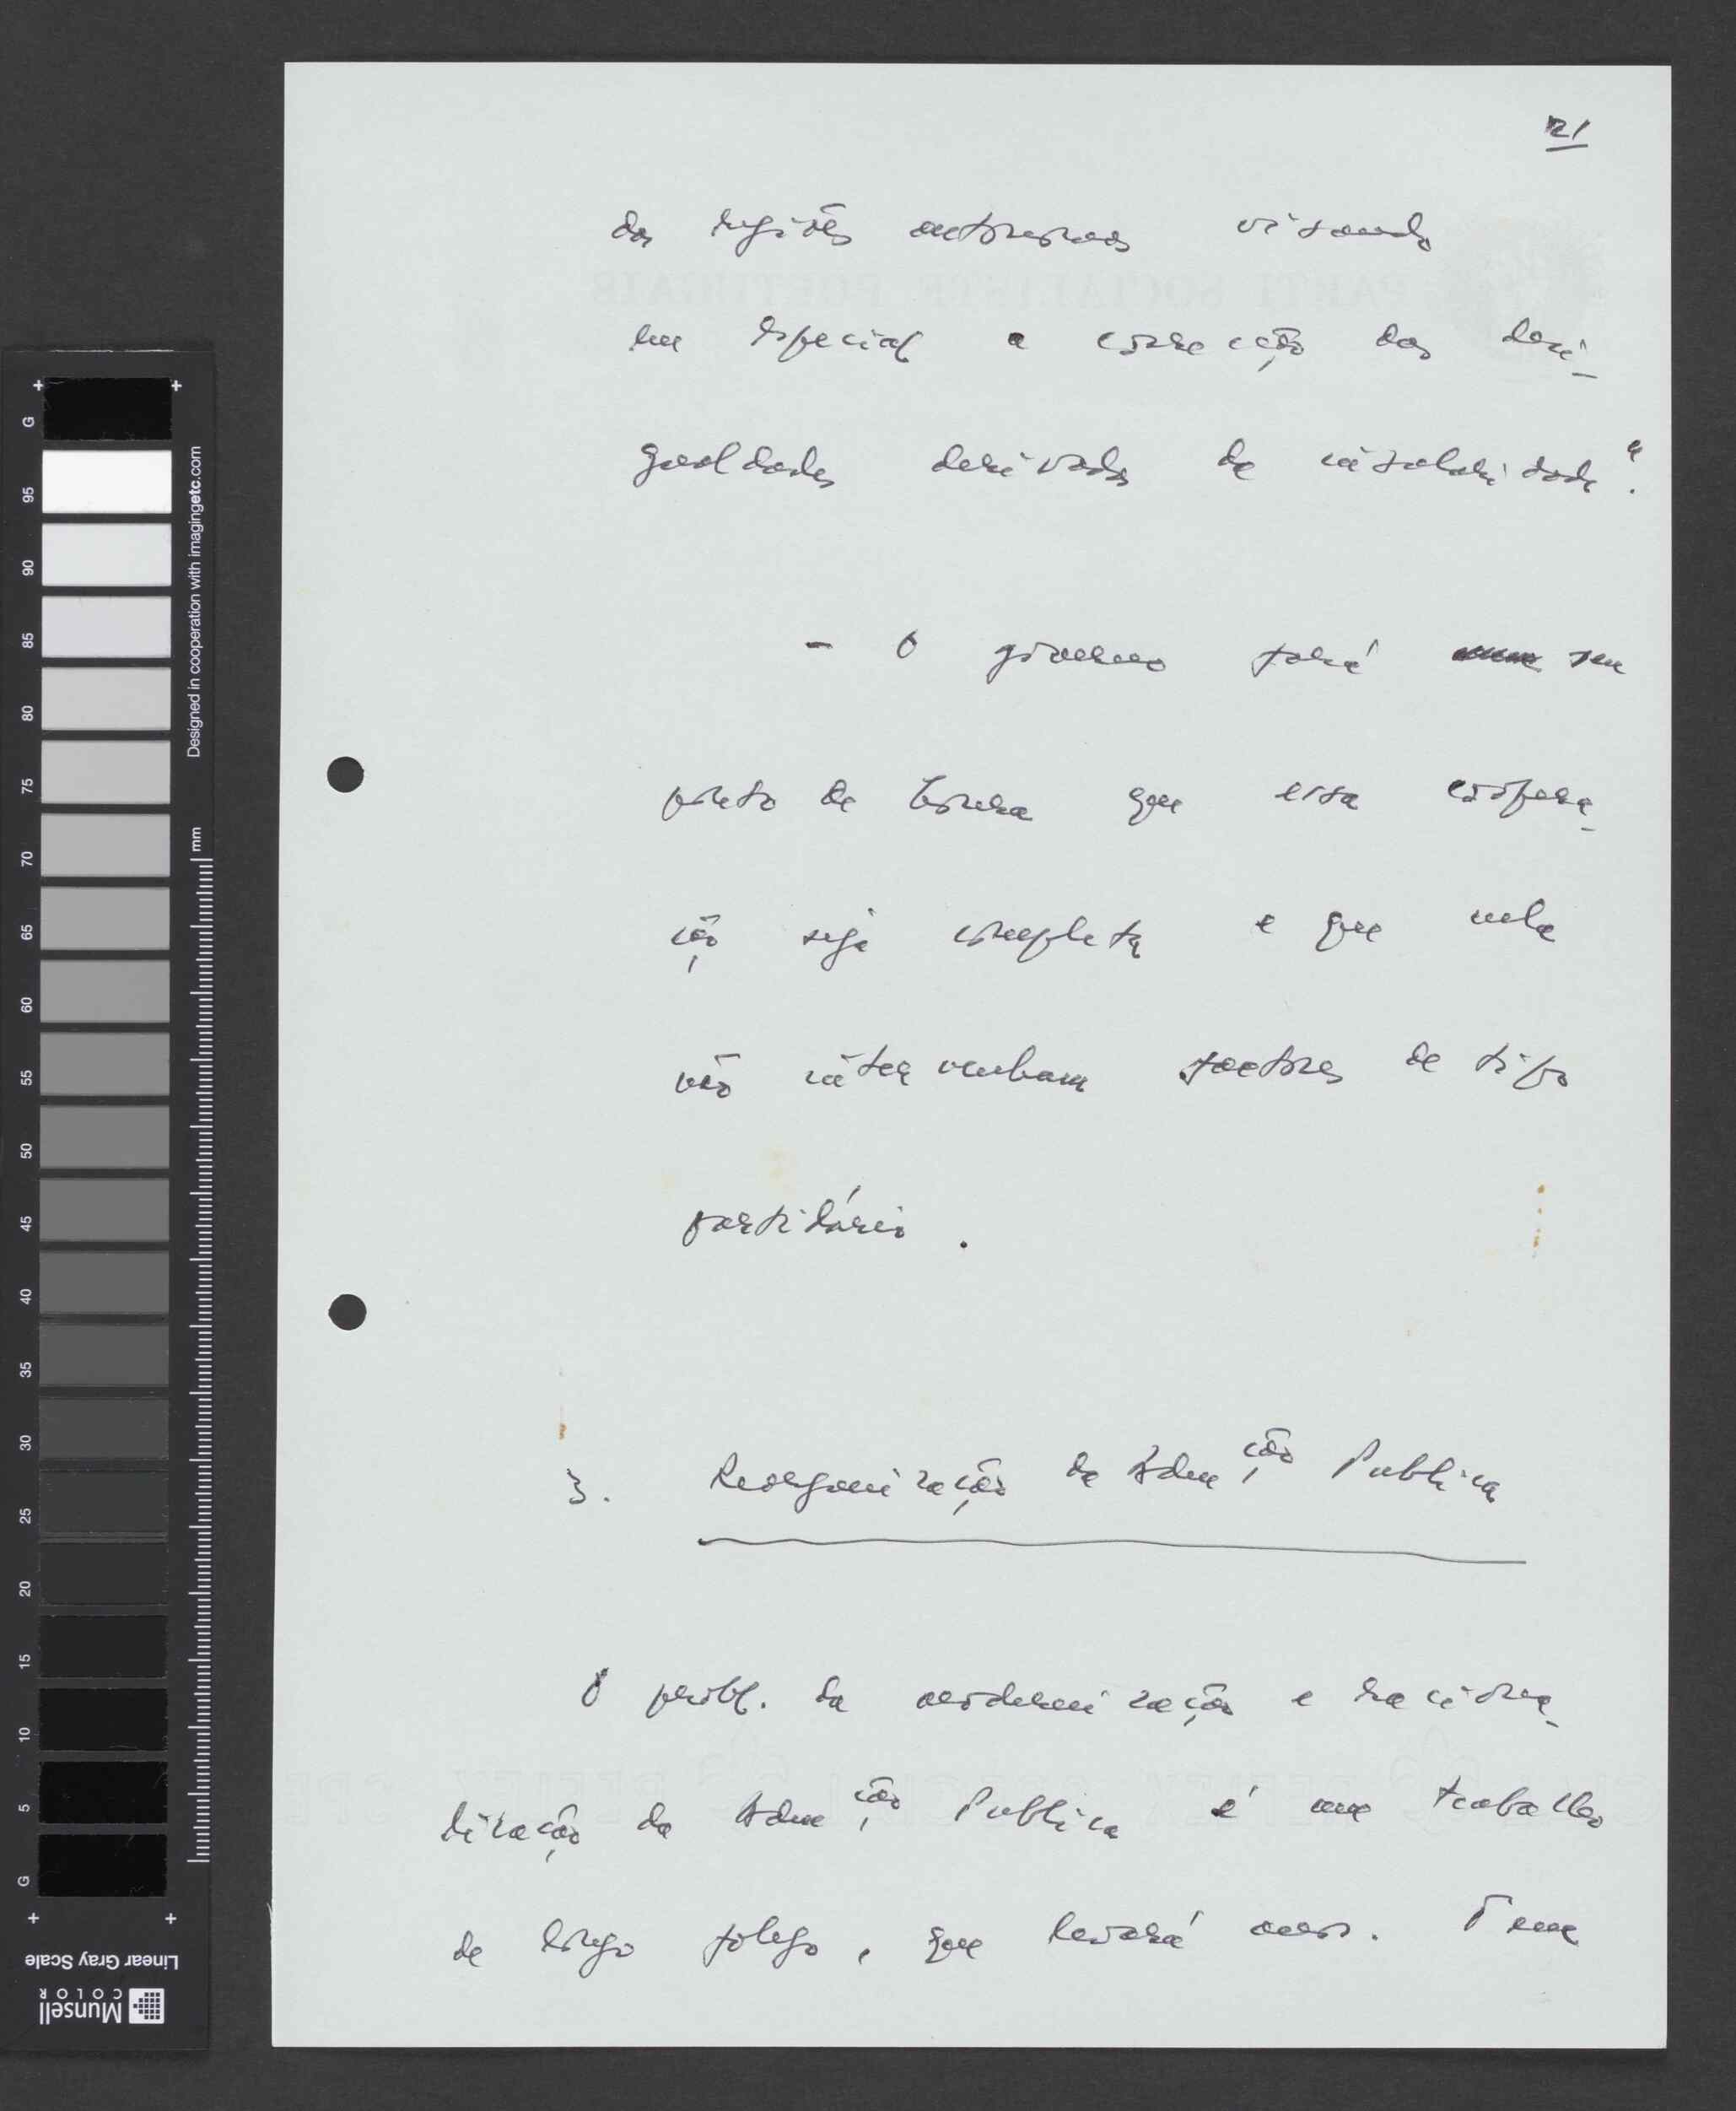 21
das regiões autónomas visando
em especial a correcção das desi-
gualdades derivadas da insularidade".
- O governo fará seu
ponto de honra que essa coopera-
ção seja completa e que nela
não intervenham factores de tipo
partidário.
3. Reorganização da Adm.ção Publica
O probl. da modernização e raciona-
lização da Adm.ção Publica é um trabalho
de longo folego, que levará anos. É uma
PARTI SOCIALISTE PORTUGAIS
G
95
90
85
80
75
70
65
60
55
50
45
40
35
30
25
20
15
10
5
G
Designed in cooperation with imagingetc.com
mm
Linear Gray Scale
Munsell
COLOR